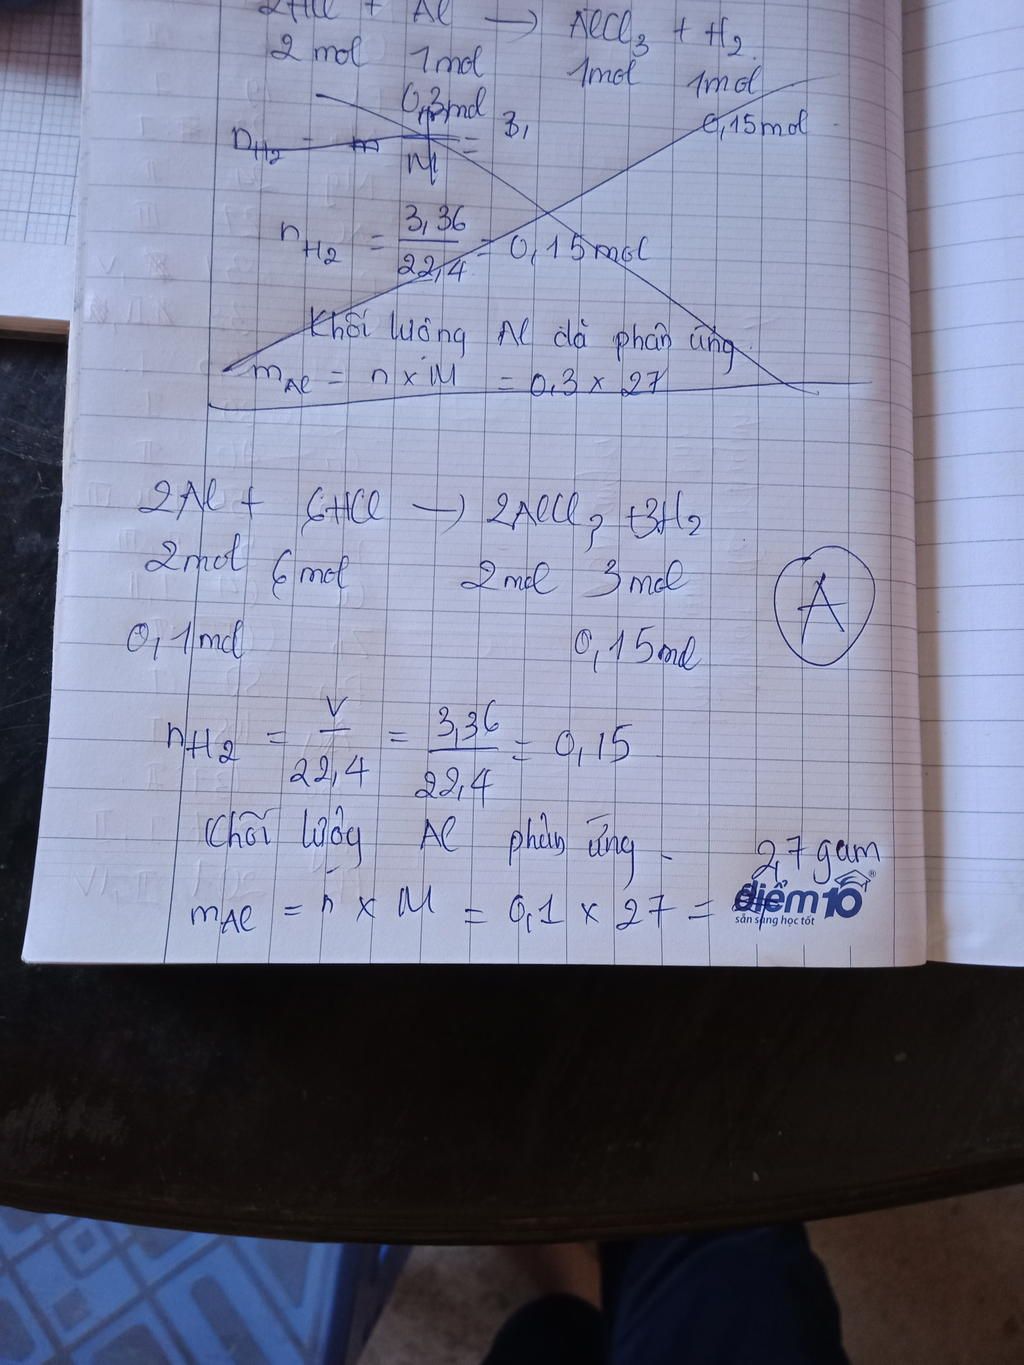 2HCl + Al → AlCl3 + H2
2 mol 1mol 1mol 1mol
0,3mol 0,15mol
nH2 = m/M = 3,
nH2 = 3,36/22,4 = 0,15mol
Khối lượng Al đã phản ứng
mAl = n × M = 0,3 × 27
2Al + 6HCl → 2AlCl3 + 3H2
2mol 6mol 2mol 3mol
0,1mol 0,15mol
A
nH2 = V/22,4 = 3,36/22,4 = 0,15
Khối lượng Al phản ứng
2,7 gam
mAl = n × M = 0,1 × 27 =
điểm10®
sẵn sàng học tốt